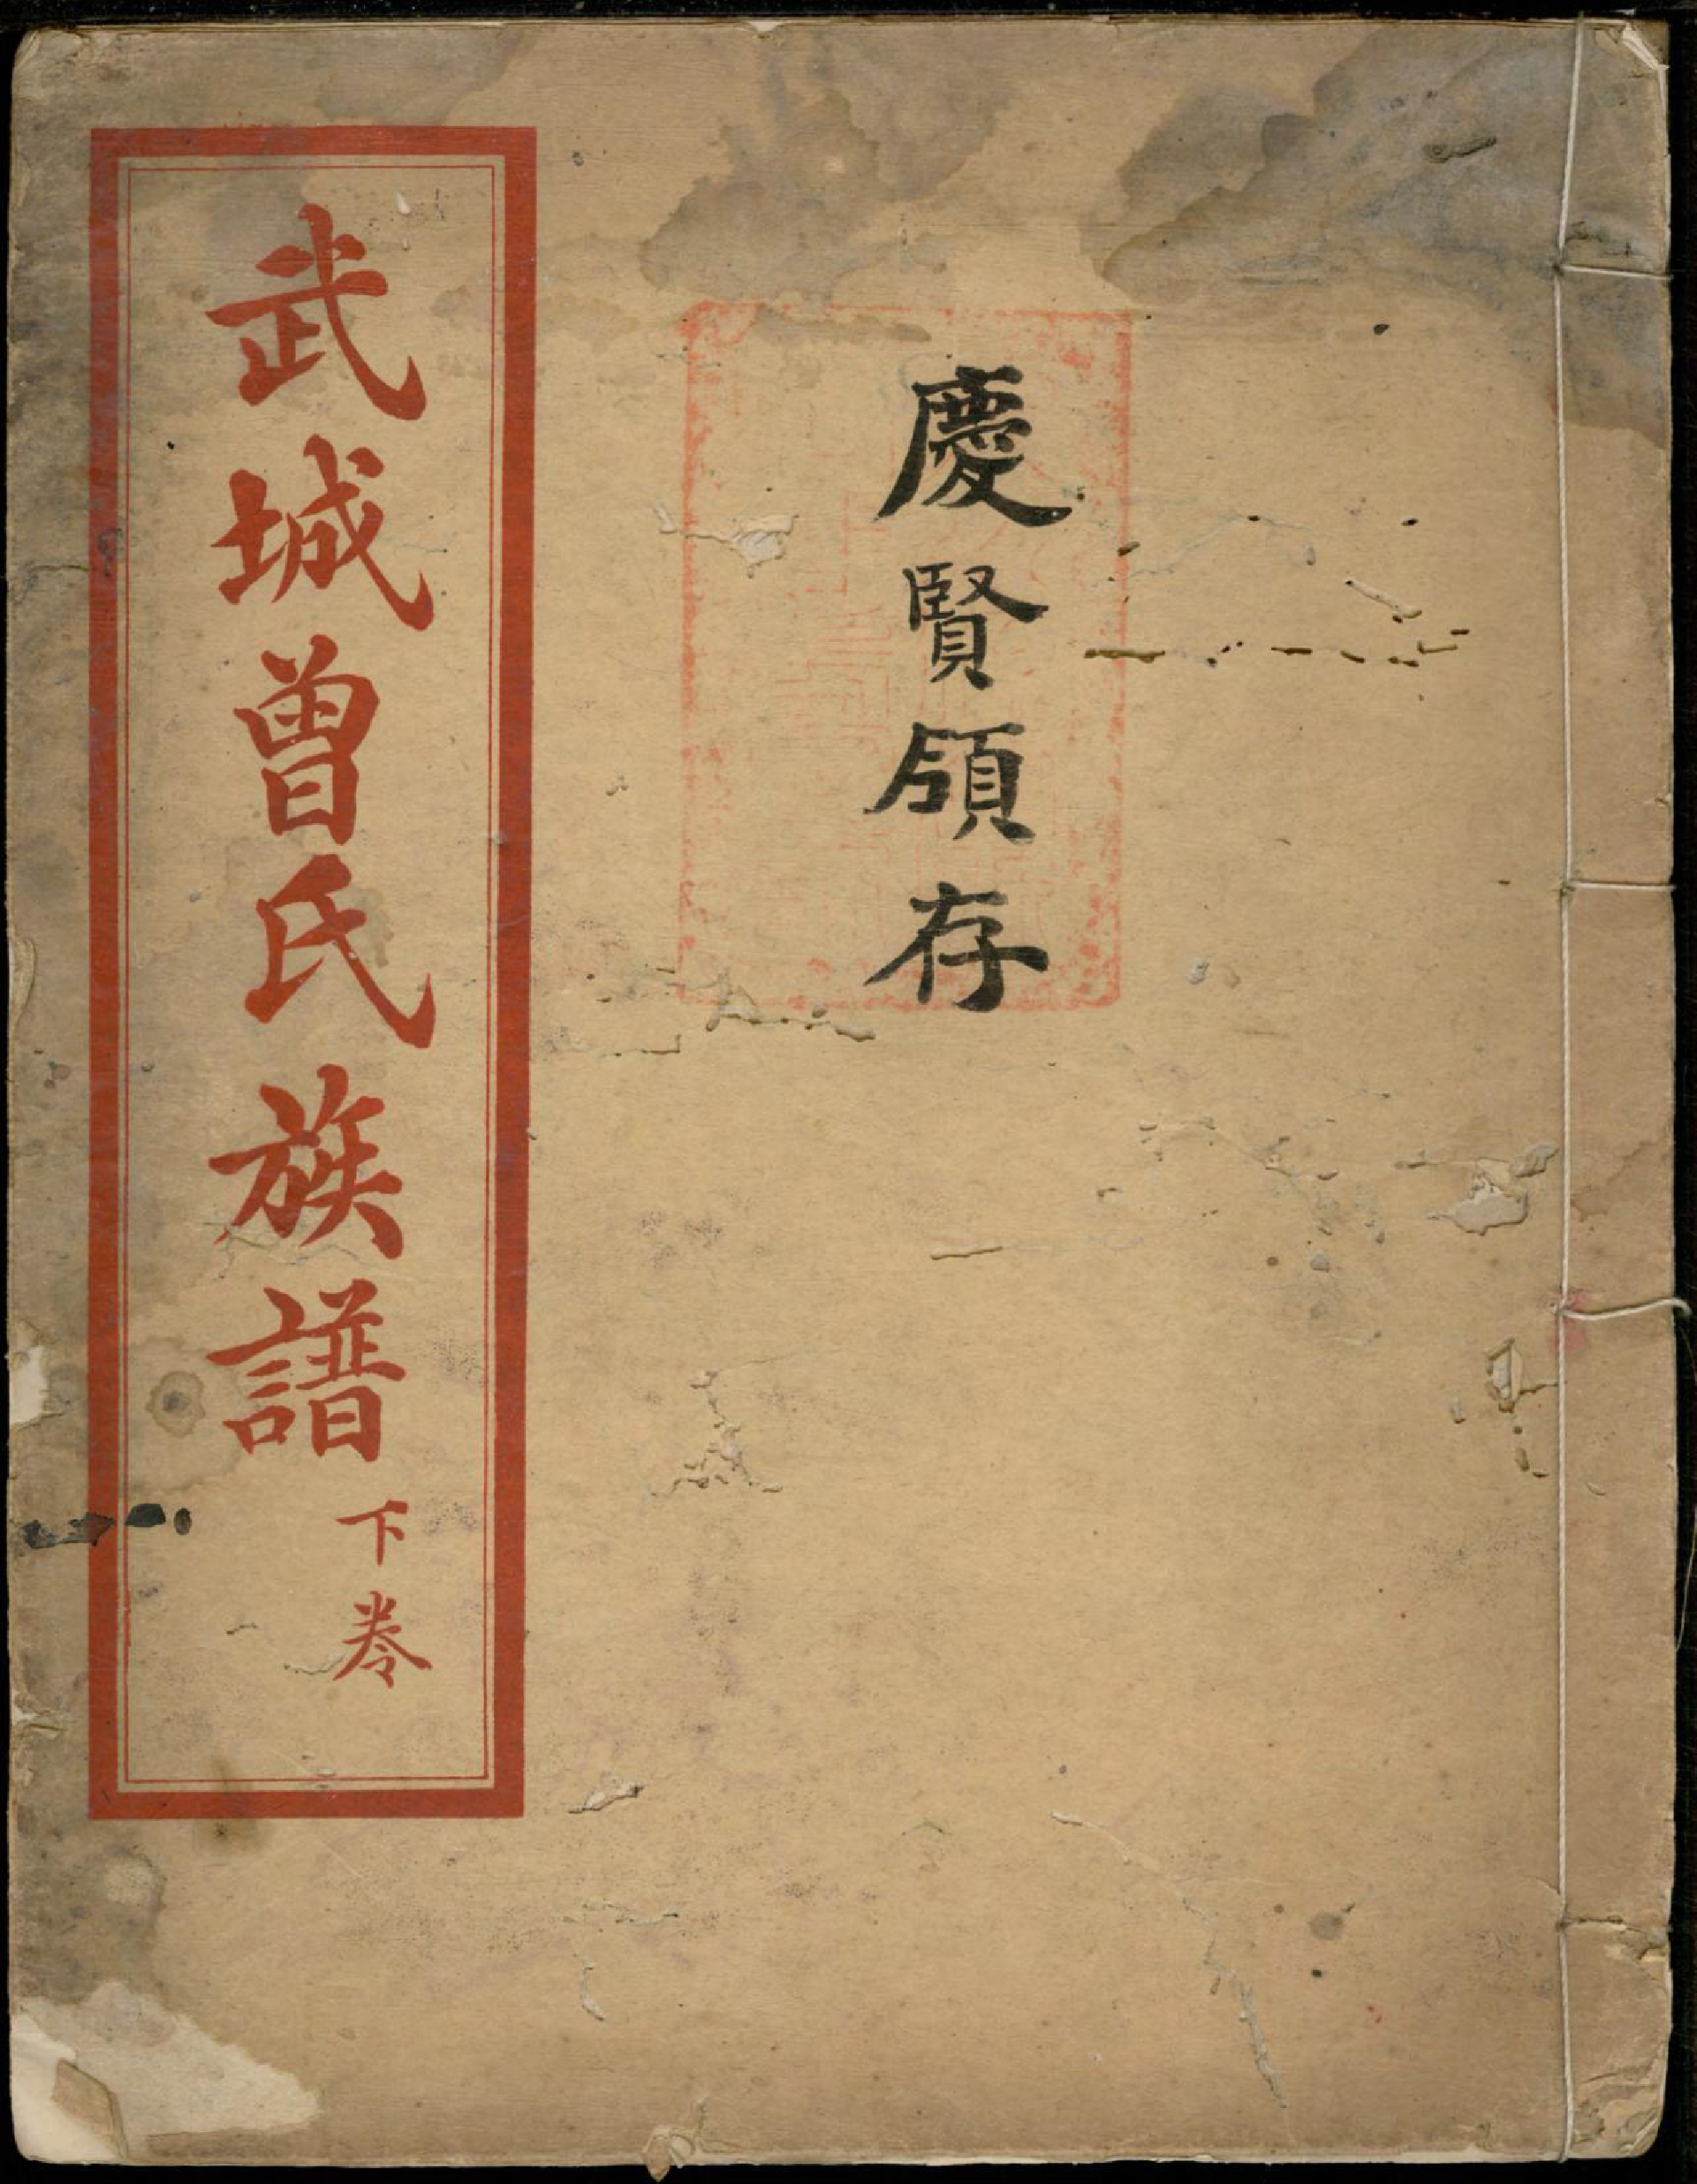 慶賢領存
武城曾氏族譜
下卷